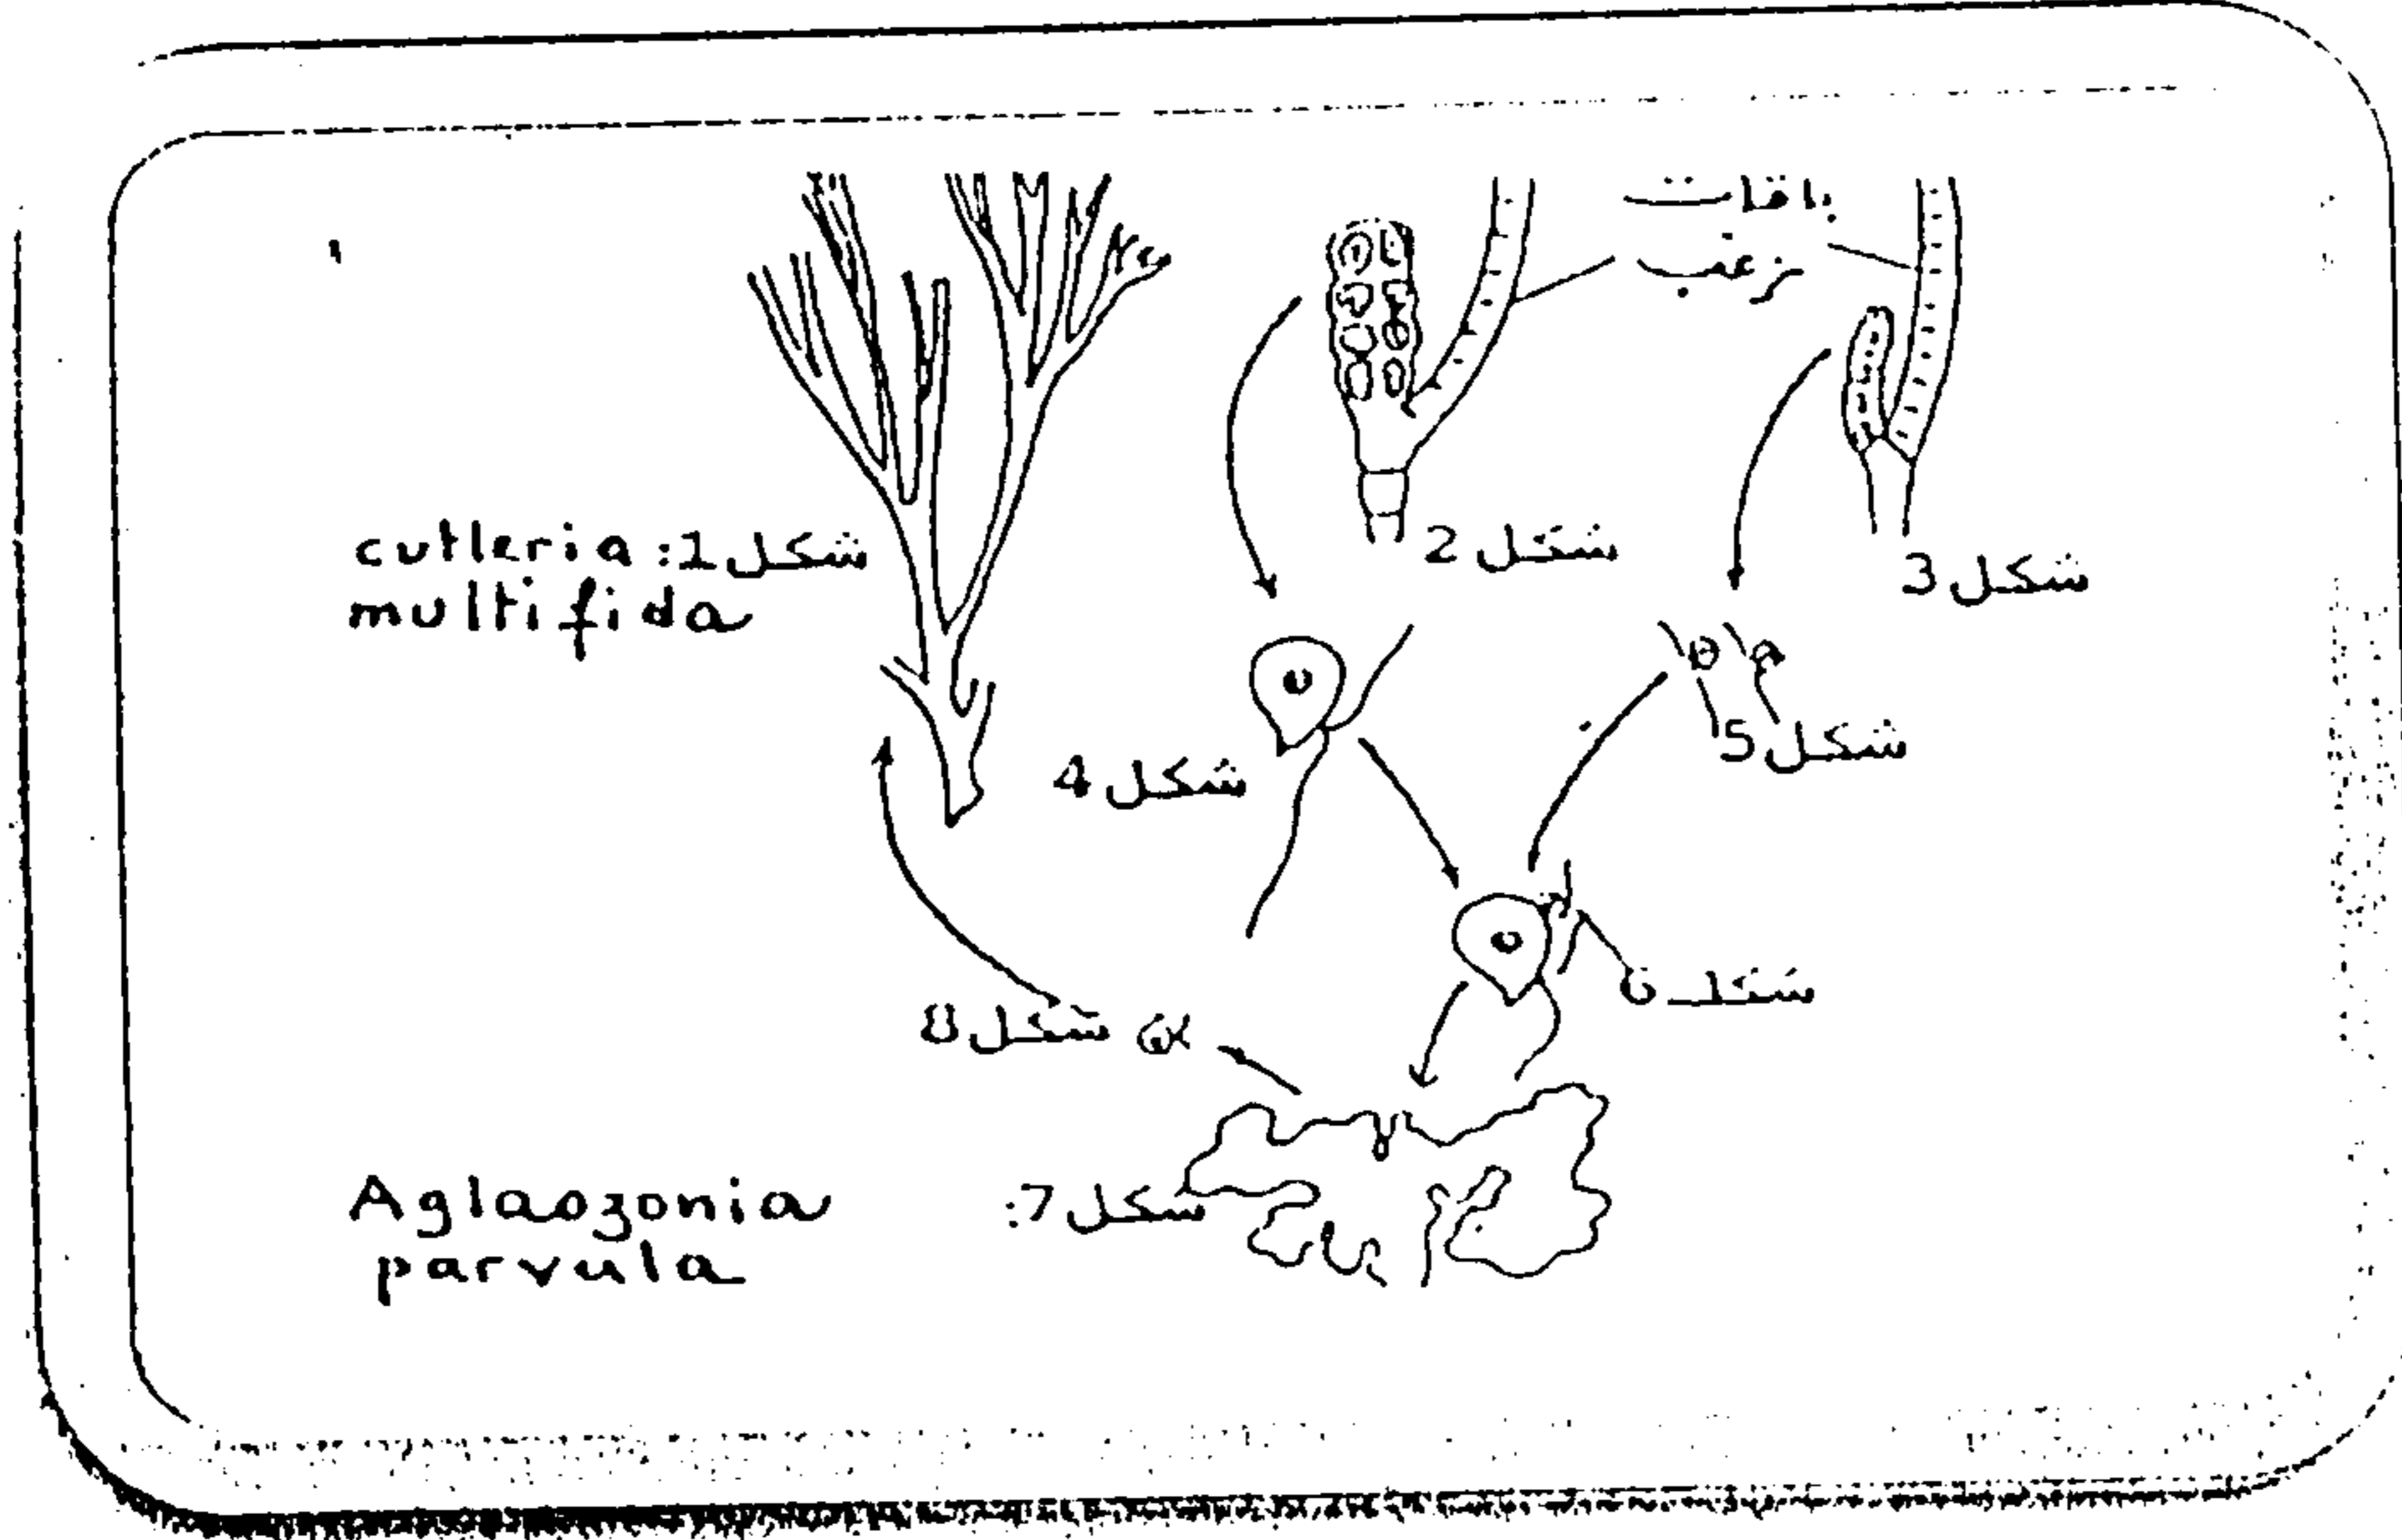 باقات
زغب
شكل 1: cutleria
multifida
شكل 2
شكل 3
شكل 4
شكل 5
شكل 6
شكل 8
شكل 7:
Aglaozonia
parvula